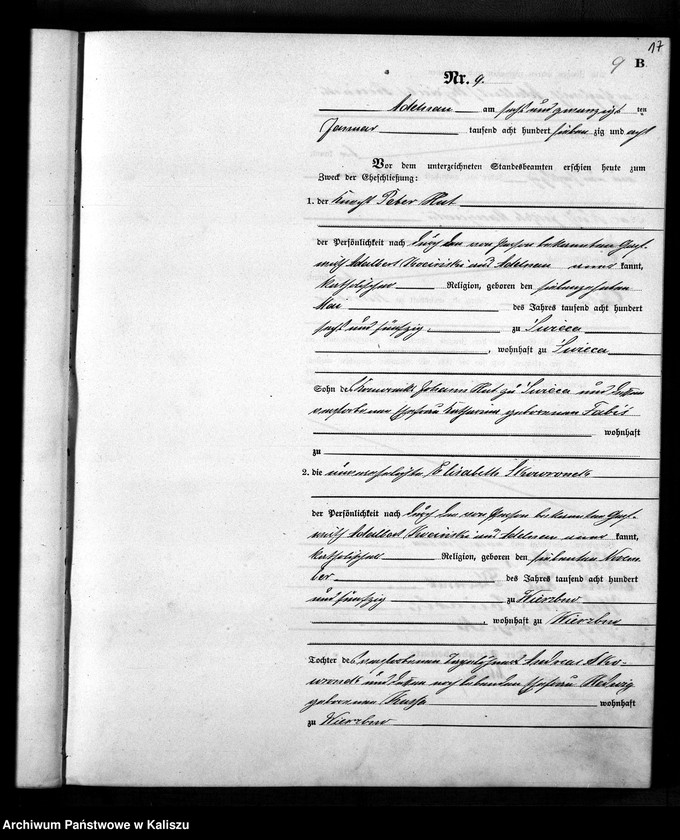 17
9 B
Nr. 9.
Adelnau am sechs und zwanzigsten
Januar tausend acht hundert siebenzig und acht
Vor dem unterzeichneten Standesbeamten erschien heute zum
Zweck der Eheschließung:
1. der Knecht Peter Rut
der Persönlichkeit nach durch den von Person bekannten Gast-
wirth Adalbert Kocinski aus Adelnau kannt,
katholischer Religion, geboren den siebenzehnten
Mai des Jahres tausend acht hundert
sechs und fünfzig, zu Swieca
, wohnhaft zu Swieca
Sohn des Komornik Johann Rut zu Swieca und dessen
verstorbenen Ehefrau Katharina geborenen Tabis
wohnhaft
zu
2. die unverehelichte Elisabeth Skowronek
der Persönlichkeit nach durch den von Person bekannten Gast-
wirth Adalbert Kocinski aus Adelnau kannt,
katholischer Religion, geboren den siebenten Novem-
ber des Jahres tausend acht hundert
und fünfzig zu Wierzbno
, wohnhaft zu Wierzbno
Tochter des verstorbenen Tagelöhner Andreas Sko-
wronek und dessen noch lebenden Ehefrau Hedwig
geborenen wohnhaft
zu Wierzbno
Archiwum Państwowe w Kaliszu